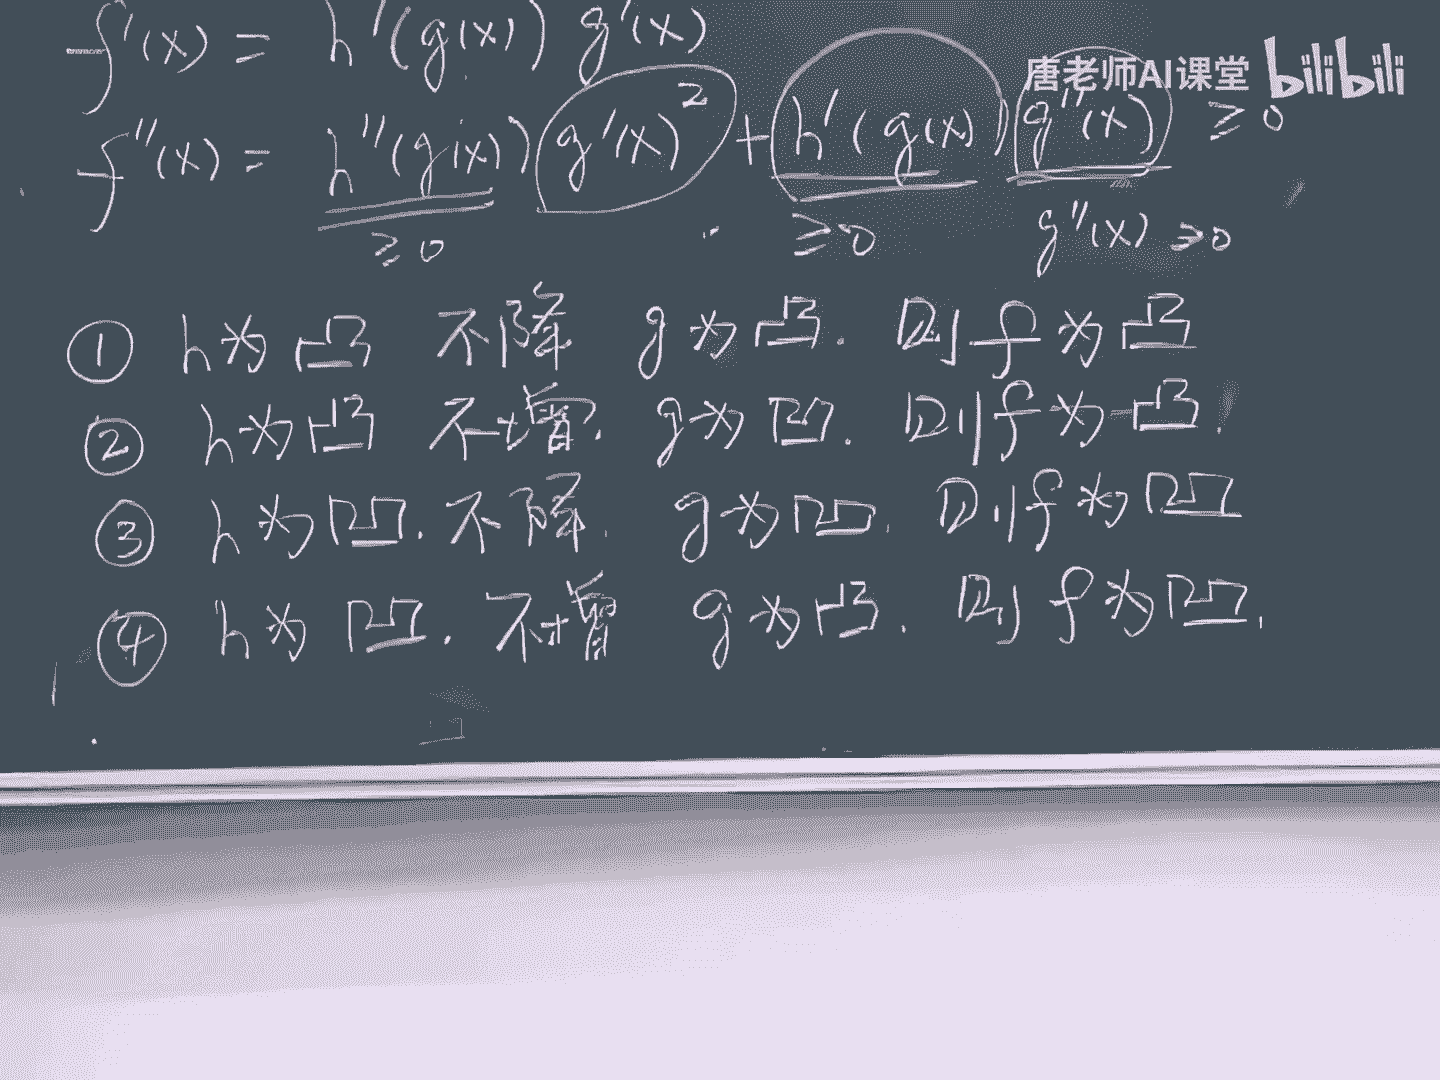 f'(x) = h'(g(x)) g'(x)
唐老师AI课堂 bilibili
f''(x) = h''(g(x)) g'(x)² + h'(g(x)) g''(x) ≥ 0
≥0 ≥0 g''(x) ≥0
① h为凸 不降 g为凸. 则f为凸
② h为凸 不增. g为凹. 则f为凸.
③ h为凹. 不降. g为凹. 则f为凹
④ h为凹. 不增 g为凸. 则f为凹.